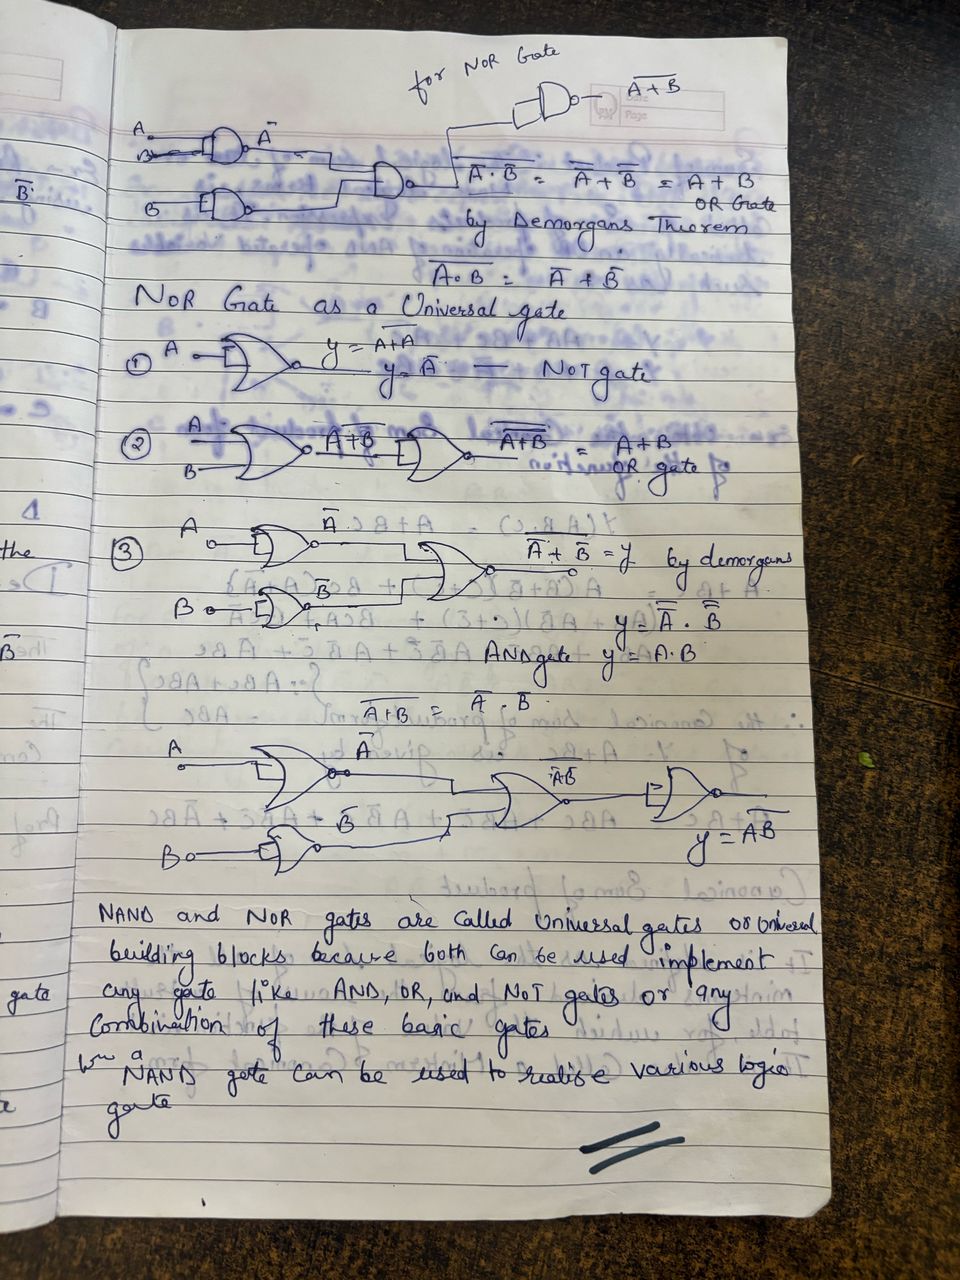 for NOR Gate
A̅+̅B̅
A
B
A̅
B̅
B
A̅ · B̅ = A̅ + B̅ = A + B
OR Gate
by Demorgans Theorem
A̅·̅B̅ = A̅ + B̅
NOR Gate as a Universal gate
① A y = A̅+̅A̅
y = A̅ — NOT gate
② A B A̅+̅B̅ A̅+̅B̅ = A+B
OR gate
③ A A̅ A̅ + B̅ = y by demorgans
the
B B̅ y = A̿ · B̿
B̅
AND gate y = A·B
A̅+̅B̅ = A̅ · B̅
A A̅ A̅B̅
B B̅ y = A̅B̅
NAND and NOR gates are called Universal gates or Universal
building blocks because both can be used implement
gate
any gate like AND, OR, and NOT gates or any
Combination of these basic gates
a NAND gate can be used to realise various logic
gate